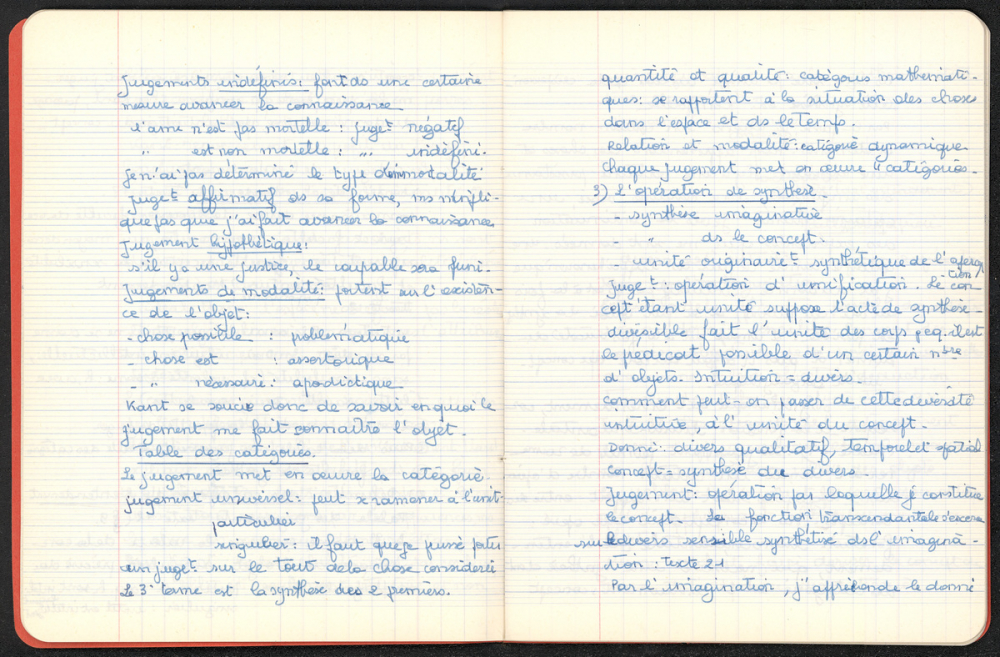 Jugements indéfinis: font ds une certaine
mesure avancer la connaissance
L'ame n'est pas mortelle : juget négatif
" est non mortelle : " indéfini.
Je n'ai pas déterminé le type d'immortalité
Juget affirmatif ds sa forme, ms n'impli-
que pas que j'ai fait avancer la connaissance
Jugement hypothétique:
s'il y a une justice, le coupable sera puni.
Jugements de modalité: portent sur l'existen-
ce de l'objet:
- chose possible : problématique
- chose est : assertorique
- " nécessaire : apodictique
Kant se soucie donc de savoir en quoi le
jugement me fait connaître l'objet.
Table des catégories.
Le jugement met en oeuvre la catégorie.
jugement universel: peut se ramener à l'unité
particulier
singulier: il faut que je puisse porter
un juget sur le tout de la chose considérée
Le 3e terme est la synthèse des 2 premiers.
quantité et qualité: catégories mathémati-
ques: se rapportent à la situation des choses
dans l'espace et ds le temps.
Relation et modalité: catégorie dynamique
Chaque jugement met en oeuvre 4 catégories.
3) L'opération de synthèse.
- synthèse imaginative
- " ds le concept.
- unité originairet synthétique de l'apercep
-tion
Juget: opération d'unification. Le con-
cept étant unité suppose l'acte de synthèse.
divisible fait l'unité des corps p.eq. il est
le prédicat possible d'un certain nbre
d'objets. Intuition = divers.
Comment peut-on passer de cette diversité
intuitive, à l'unité du concept.
Donné: divers qualitatif, temporel et spatial
Concept = synthèse du divers.
Jugement: opération par laquelle je constitue
le concept. La fonction transcendantale s'exerce
sur le divers sensible synthétisé ds l'imagina-
tion : texte 21
Par l'imagination, j'appréhende le donné